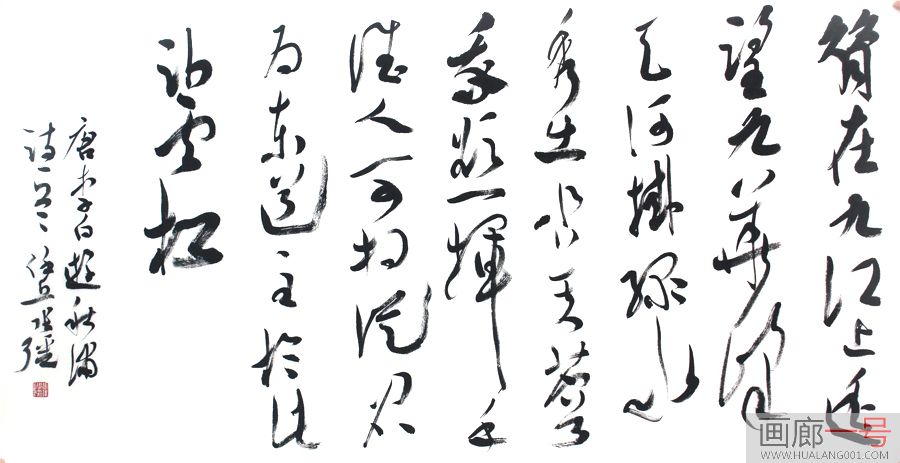 昔在九江上遥
望九華峰
天河掛綠水
秀出芙蓉
我欲一揮手
誰人可相從君
為東道主於此
卧雲松
唐李白遊秋浦
詩一首
画廊一号
WWW.HUALANG001.COM